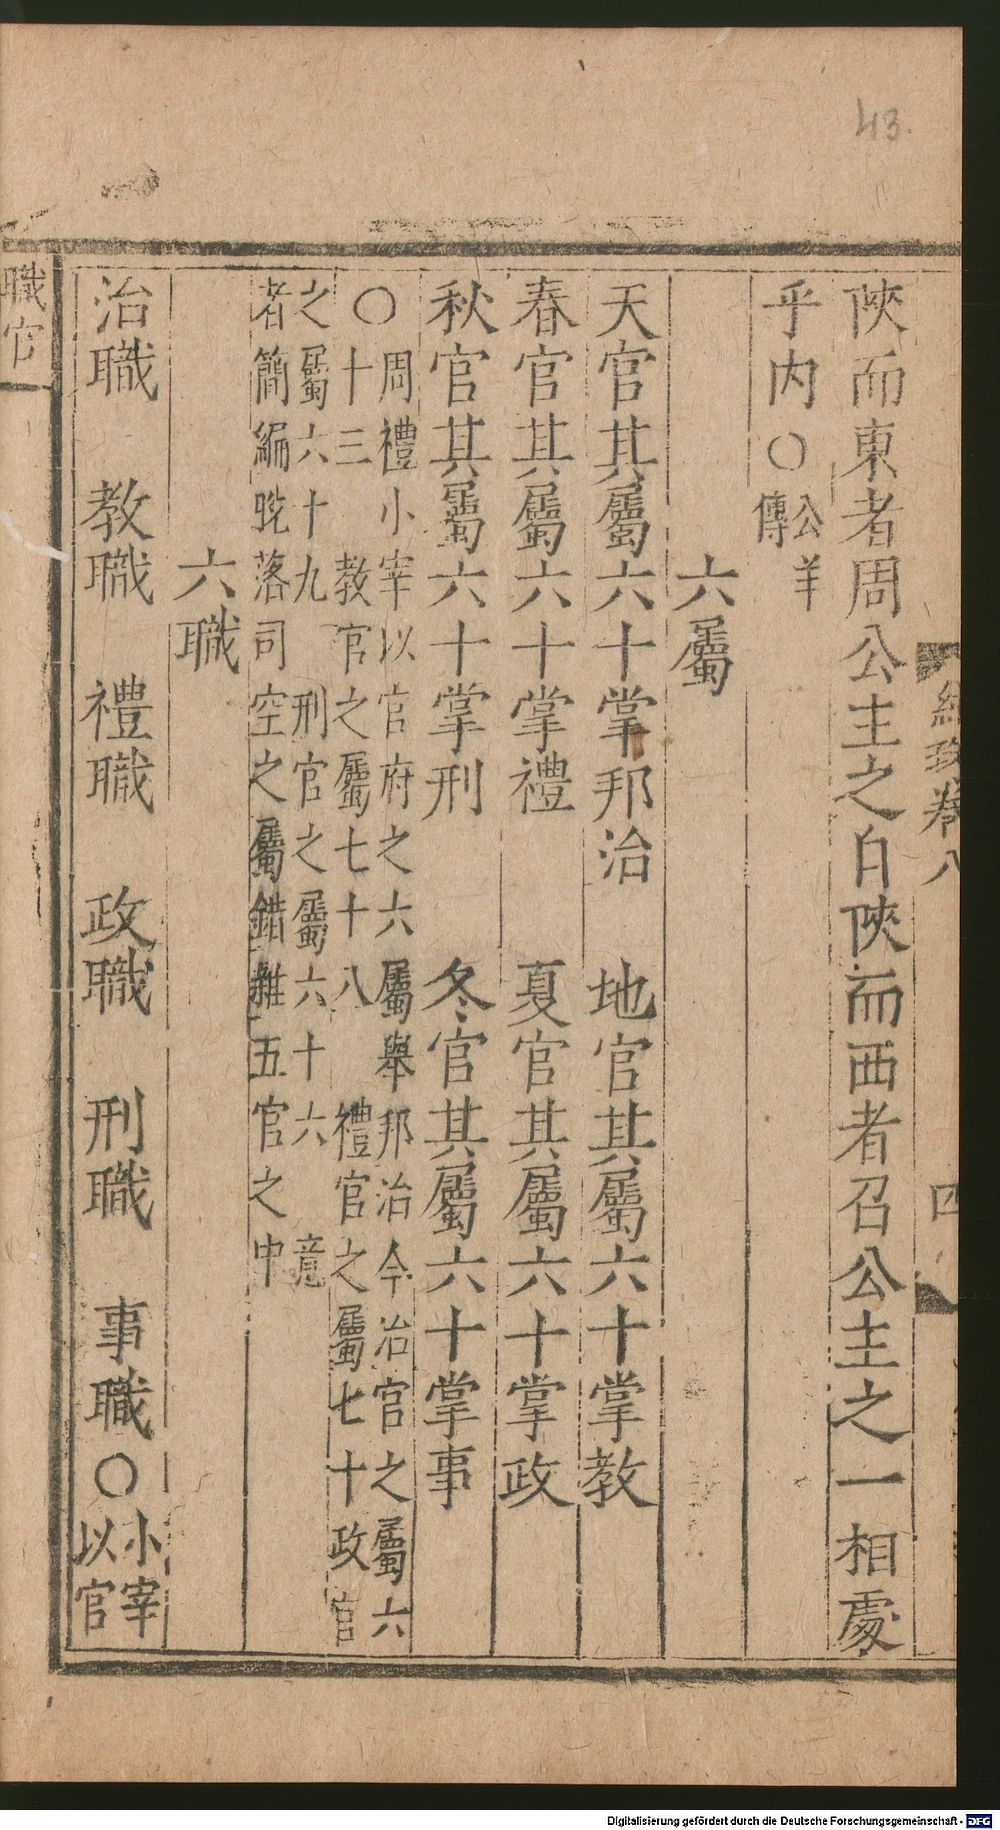 43.
陜而東者周公主之自陜而西者召公主之一相處
乎內○公羊
傳
六屬
天官其屬六十掌邦治 地官其屬六十掌教
春官其屬六十掌禮 夏官其屬六十掌政
秋官其屬六十掌刑 冬官其屬六十掌事
○周禮小宰以官府之六屬舉邦治今治官之屬六
十三 教官之屬七十八 禮官之屬七十 政官
之屬六十九 刑官之屬六十六 意
者簡編脫落司空之屬錯雜五官之中
六職
治職 教職 禮職 政職 刑職 事職○小宰
以官
職官
卷八
四
Digitalisierung gefördert durch die Deutsche Forschungsgemeinschaft - DFG